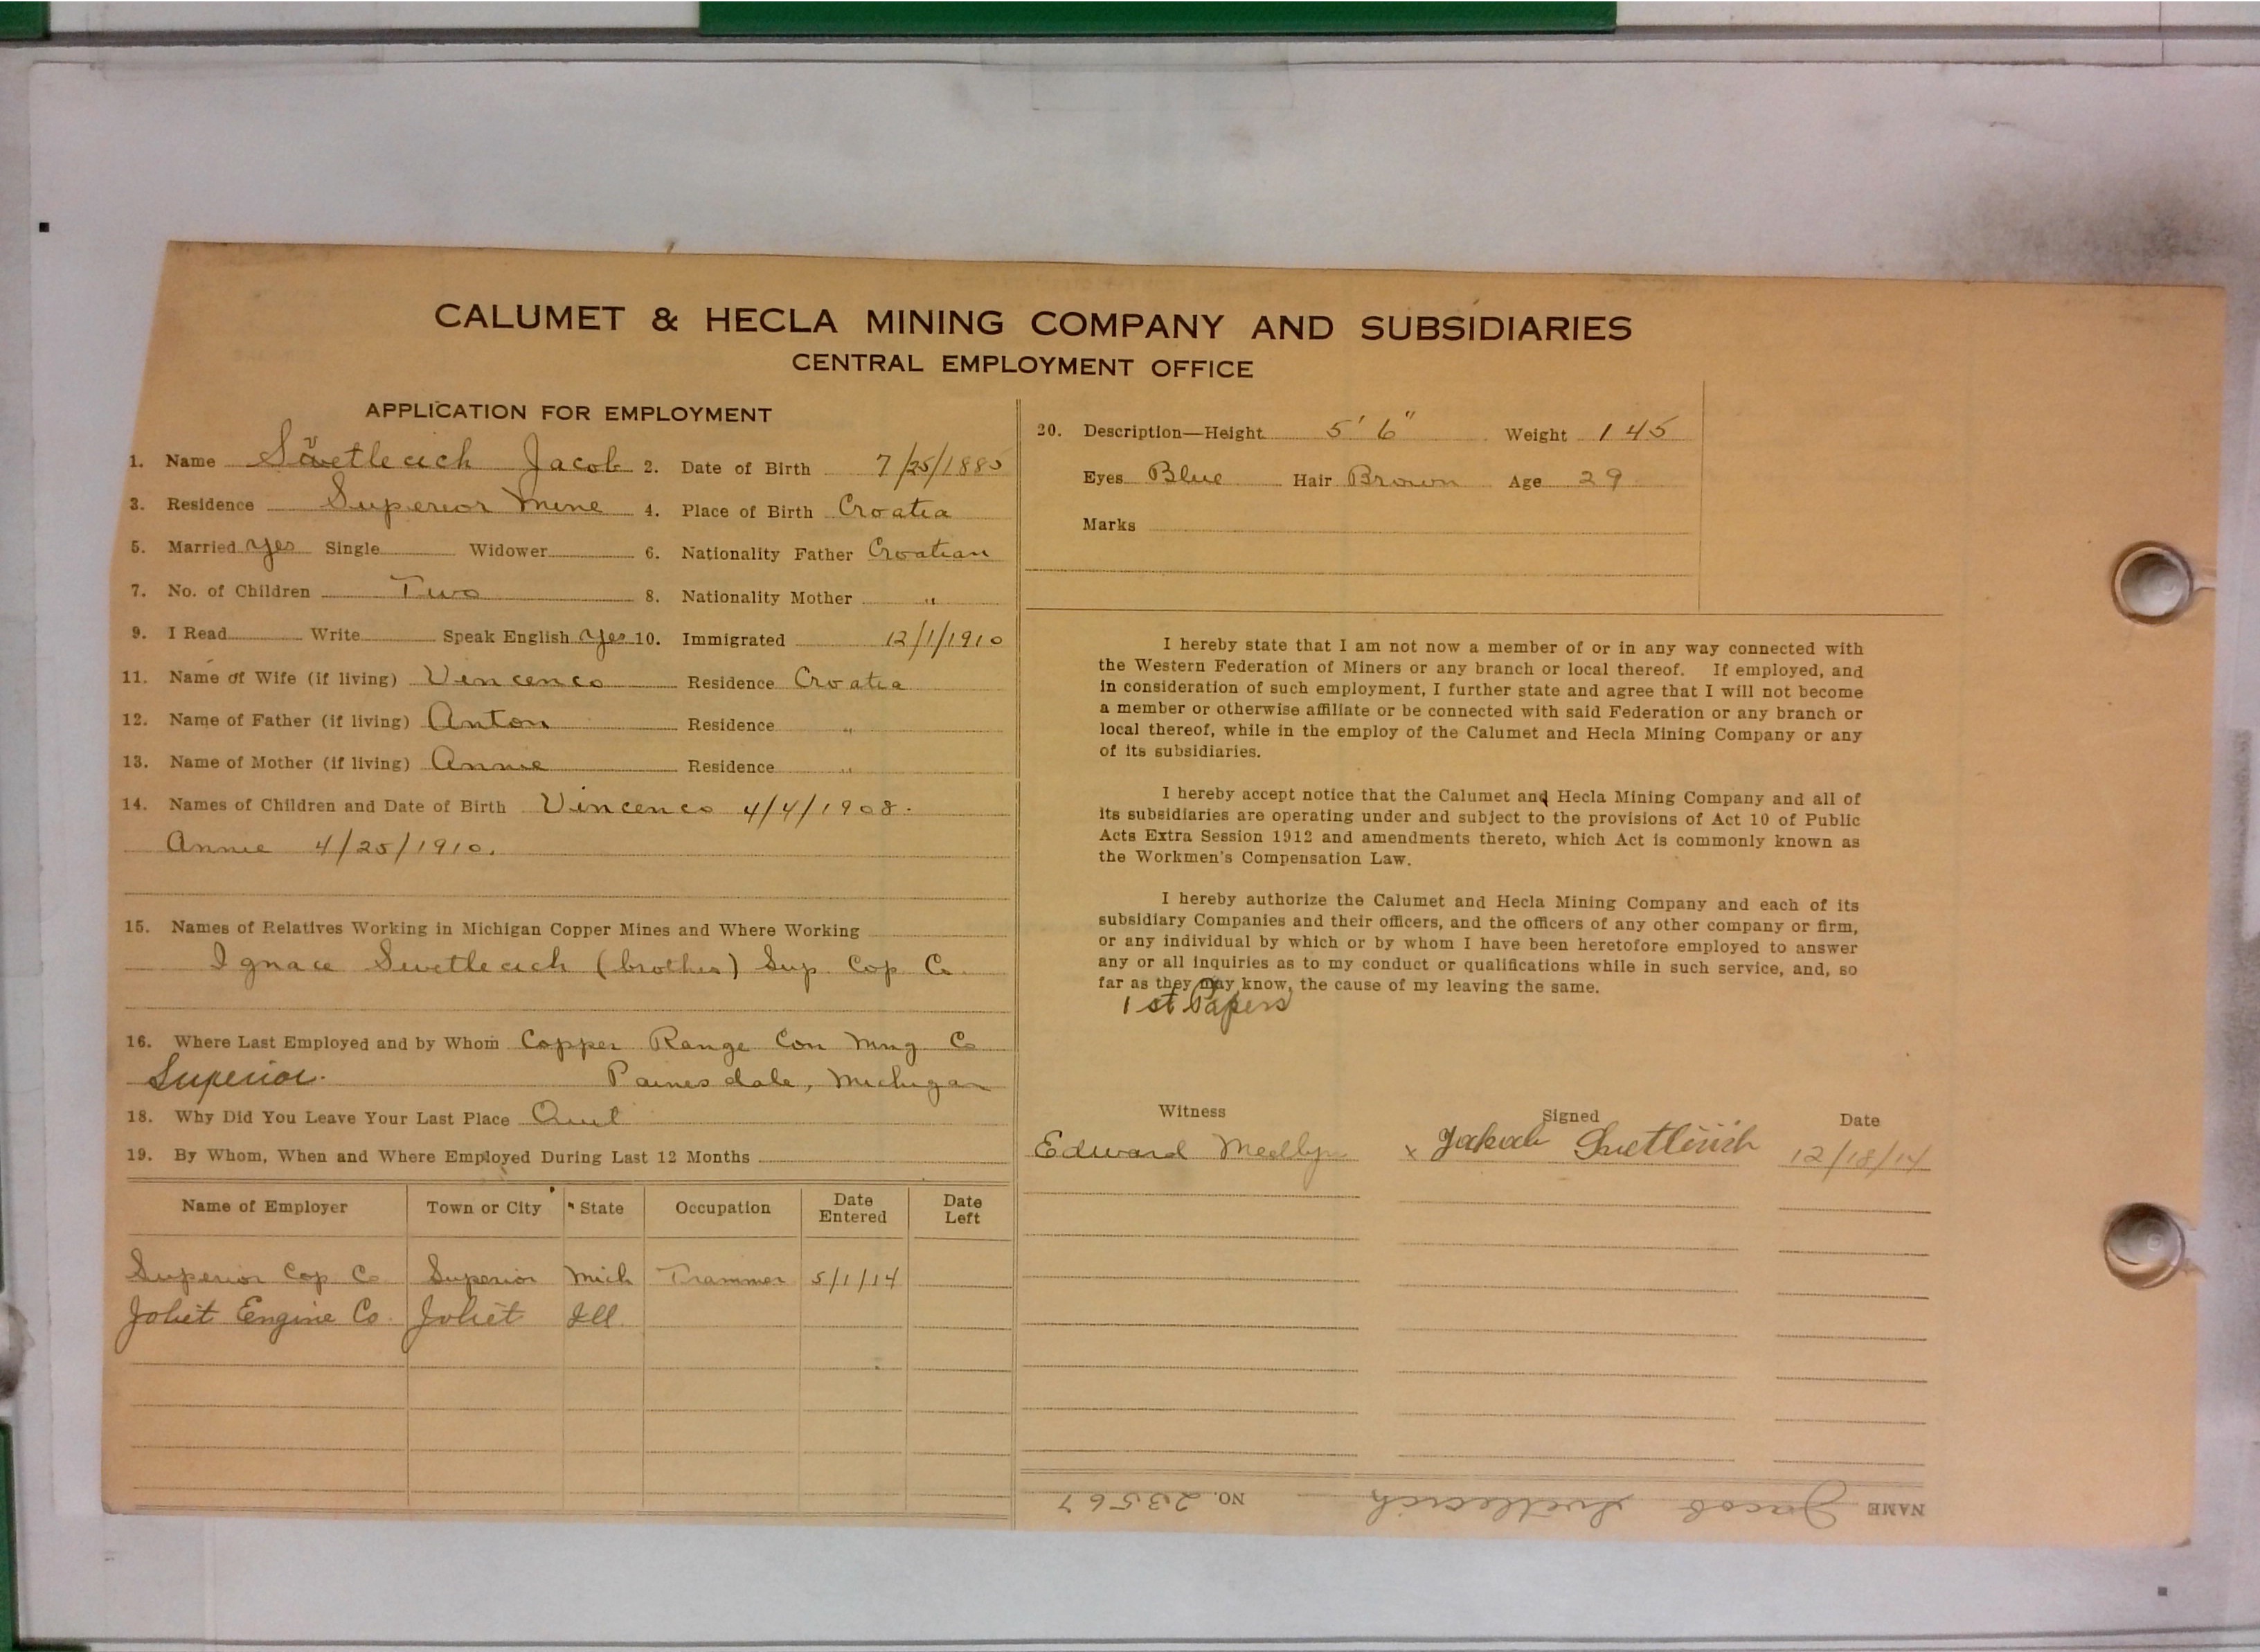 CALUMET & HECLA MINING COMPANY AND SUBSIDIARIES
CENTRAL EMPLOYMENT OFFICE
APPLICATION FOR EMPLOYMENT
1. Name Jacob 2. Date of Birth 7/25/1885
3. Residence Superior Mine 4. Place of Birth Croatia
5. Married Yes Single Widower 6. Nationality Father Croatian
7. No. of Children Two 8. Nationality Mother "
9. I Read Write Speak English Yes 10. Immigrated 12/1/1910
11. Name of Wife (if living) Vincenco Residence Croatia
12. Name of Father (if living) Anton Residence "
13. Name of Mother (if living) Annie Residence "
14. Names of Children and Date of Birth Vincenco 4/4/1908.
Annie 4/25/1910.
15. Names of Relatives Working in Michigan Copper Mines and Where Working
Ignace (brother) Sup. Cop Co.
16. Where Last Employed and by Whom Copper Range Con Mng Co
Superior. Painesdale, Michigan
18. Why Did You Leave Your Last Place Quit
19. By Whom, When and Where Employed During Last 12 Months
Name of Employer Town or City State Occupation Date Entered Date Left
Superior Cop Co Superior Mich Trammer 5/1/14
Joliet Engine Co. Joliet Ill.
20. Description—Height 5' 6" Weight 145
Eyes Blue Hair Brown Age 29
Marks
I hereby state that I am not now a member of or in any way connected with
the Western Federation of Miners or any branch or local thereof. If employed, and
in consideration of such employment, I further state and agree that I will not become
a member or otherwise affiliate or be connected with said Federation or any branch or
local thereof, while in the employ of the Calumet and Hecla Mining Company or any
of its subsidiaries.
I hereby accept notice that the Calumet and Hecla Mining Company and all of
its subsidiaries are operating under and subject to the provisions of Act 10 of Public
Acts Extra Session 1912 and amendments thereto, which Act is commonly known as
the Workmen's Compensation Law.
I hereby authorize the Calumet and Hecla Mining Company and each of its
subsidiary Companies and their officers, and the officers of any other company or firm,
or any individual by which or by whom I have been heretofore employed to answer
any or all inquiries as to my conduct or qualifications while in such service, and, so
far as they may know, the cause of my leaving the same.
1st Papers
Witness Signed Date
Edward Medlyn x Jakob 12/18/14
NAME Jacob NO. 23567